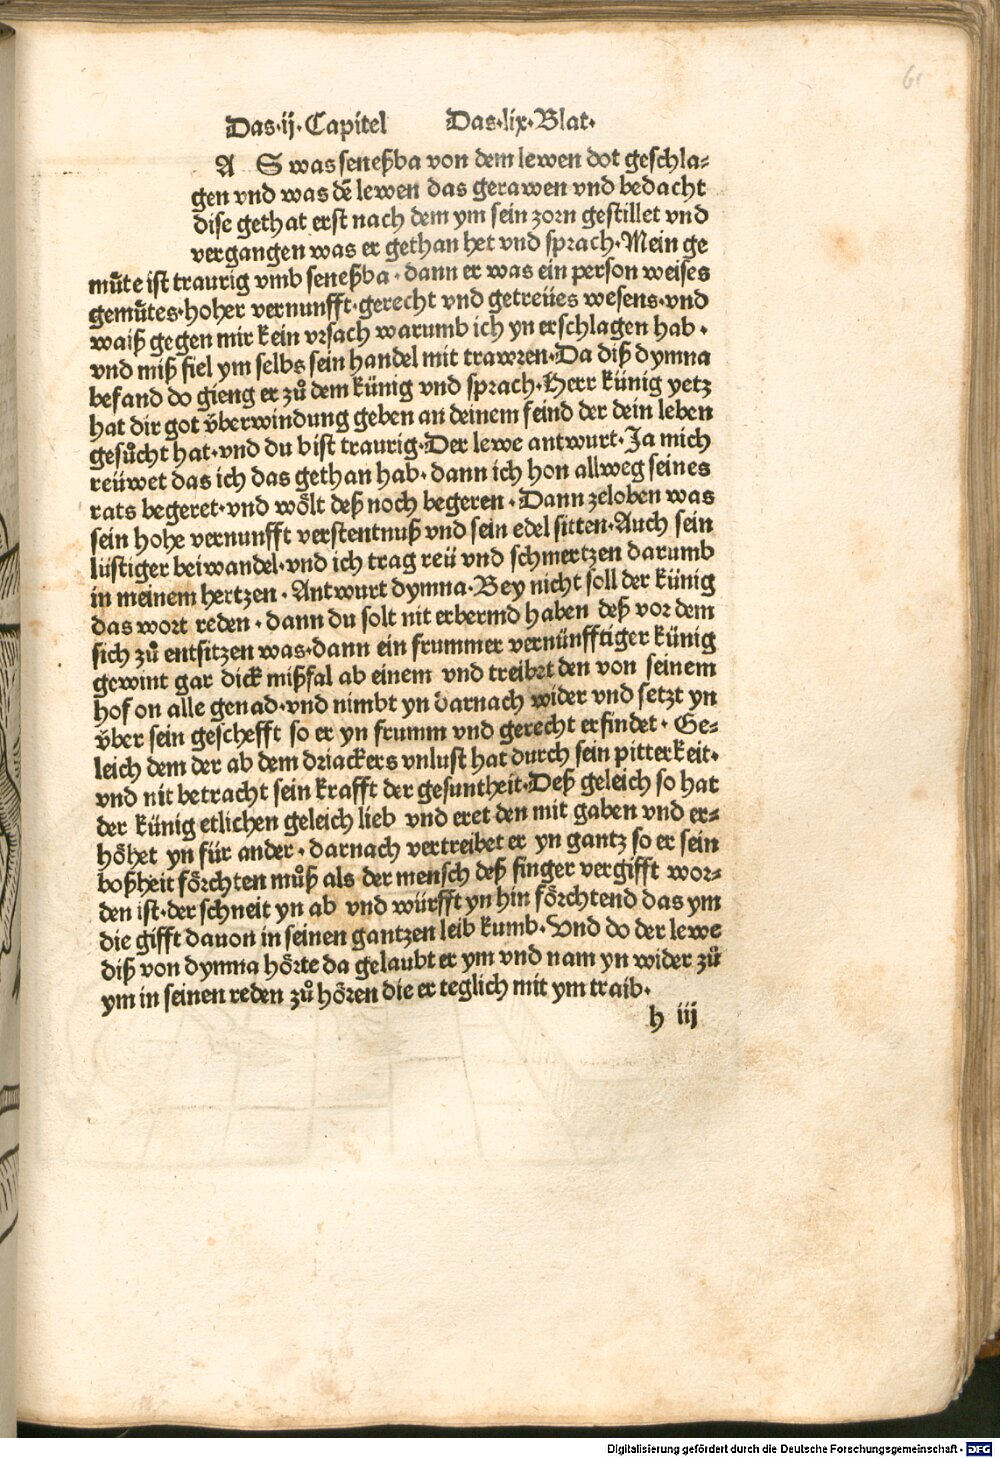 61
Das·ij·Capitel Das·lix·Blat·
A S was seneßba von dem lewen dot geschla⸗
gen vnd was dē lewen das gerawen vnd bedacht
dise gethat erst nach dem ym sein zorn gestillet vnd
vergangen was er gethan het vnd sprach·Mein ge
mu̇te ist traurig vmb seneßba·dann er was ein person weises
gemu̇tes·hoher vernunfft·gerecht vnd getreües wesens·vnd
waiß gegen mir kein vrsach warumb ich yn erschlagen hab·
vnd miß fiel ym selbs sein handel mit trawren·Da diß dymna
befand do gieng er zů dem künig vnd sprach·Herr künig yetz
hat dir got v̈berwindung geben an deinem feind der dein leben
gesůcht hat·vnd du bist traurig·Der lewe antwurt·Ja mich
reüwet das ich das gethan hab·dann ich hon allweg seines
rats begeret·vnd woͤlt deß noch begeren·Dann zeloben was
sein hohe vernunfft verstentnuß vnd sein edel sitten·Auch sein
lüstiger beiwandel·vnd ich trag reü vnd schmertzen darumb
in meinem hertzen·Antwurt dymna·Bey nicht soll der künig
das wort reden·dann du solt nit erbermd haben deß vor dem
sich zů entsitzen was·dann ein frummer vernünfftiger künig
gewint gar dick mißfal ab einem vnd treibet den von seinem
hof on alle genad·vnd nimbt yn darnach wider vnd setzt yn
v̈ber sein geschefft so er yn frumm vnd gerecht erfindet·Ge⸗
leich dem der ab dem driackers vnlust hat durch sein pitterkeit·
vnd nit betracht sein krafft der gesuntheit·Deß geleich so hat
der künig etlichen geleich lieb vnd eret den mit gaben vnd er⸗
hoͤhet yn für ander·darnach vertreibet er yn gantz so er sein
boßheit foͤrchten můß als der mensch deß finger vergifft wor⸗
den ist·der schneit yn ab vnd würfft yn hin foͤrchtend das ym
die gifft dauon in seinen gantzen leib kumb·Vnd do der lewe
diß von dymna hoͤrte da gelaubt er ym vnd nam yn wider zů
ym in seinen reden zů hoͤren die er teglich mit ym traib·
h iij
Digitalisierung gefördert durch die Deutsche Forschungsgemeinschaft - DFG